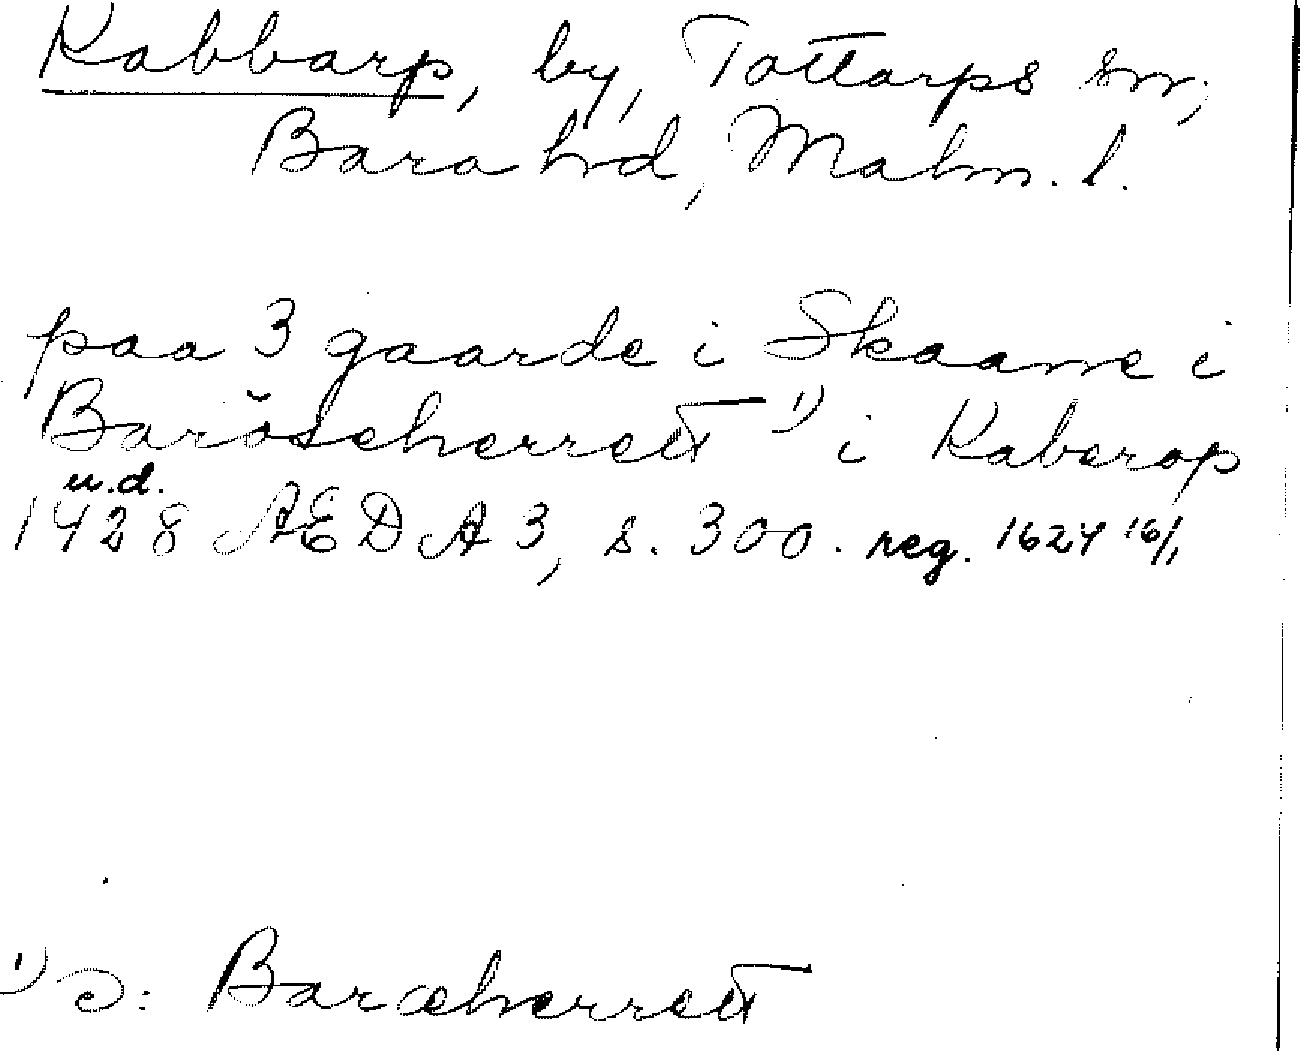 Kabbarp, by, Tottarps sn,
Bara hd, Malm. l.
paa 3 gaarde i Skaane i
Baröseherrett ¹) i Kaberop
u.d.
1428 AEDA 3, s. 300. reg. 1624 16/1
¹) ɔ: Baræherrett